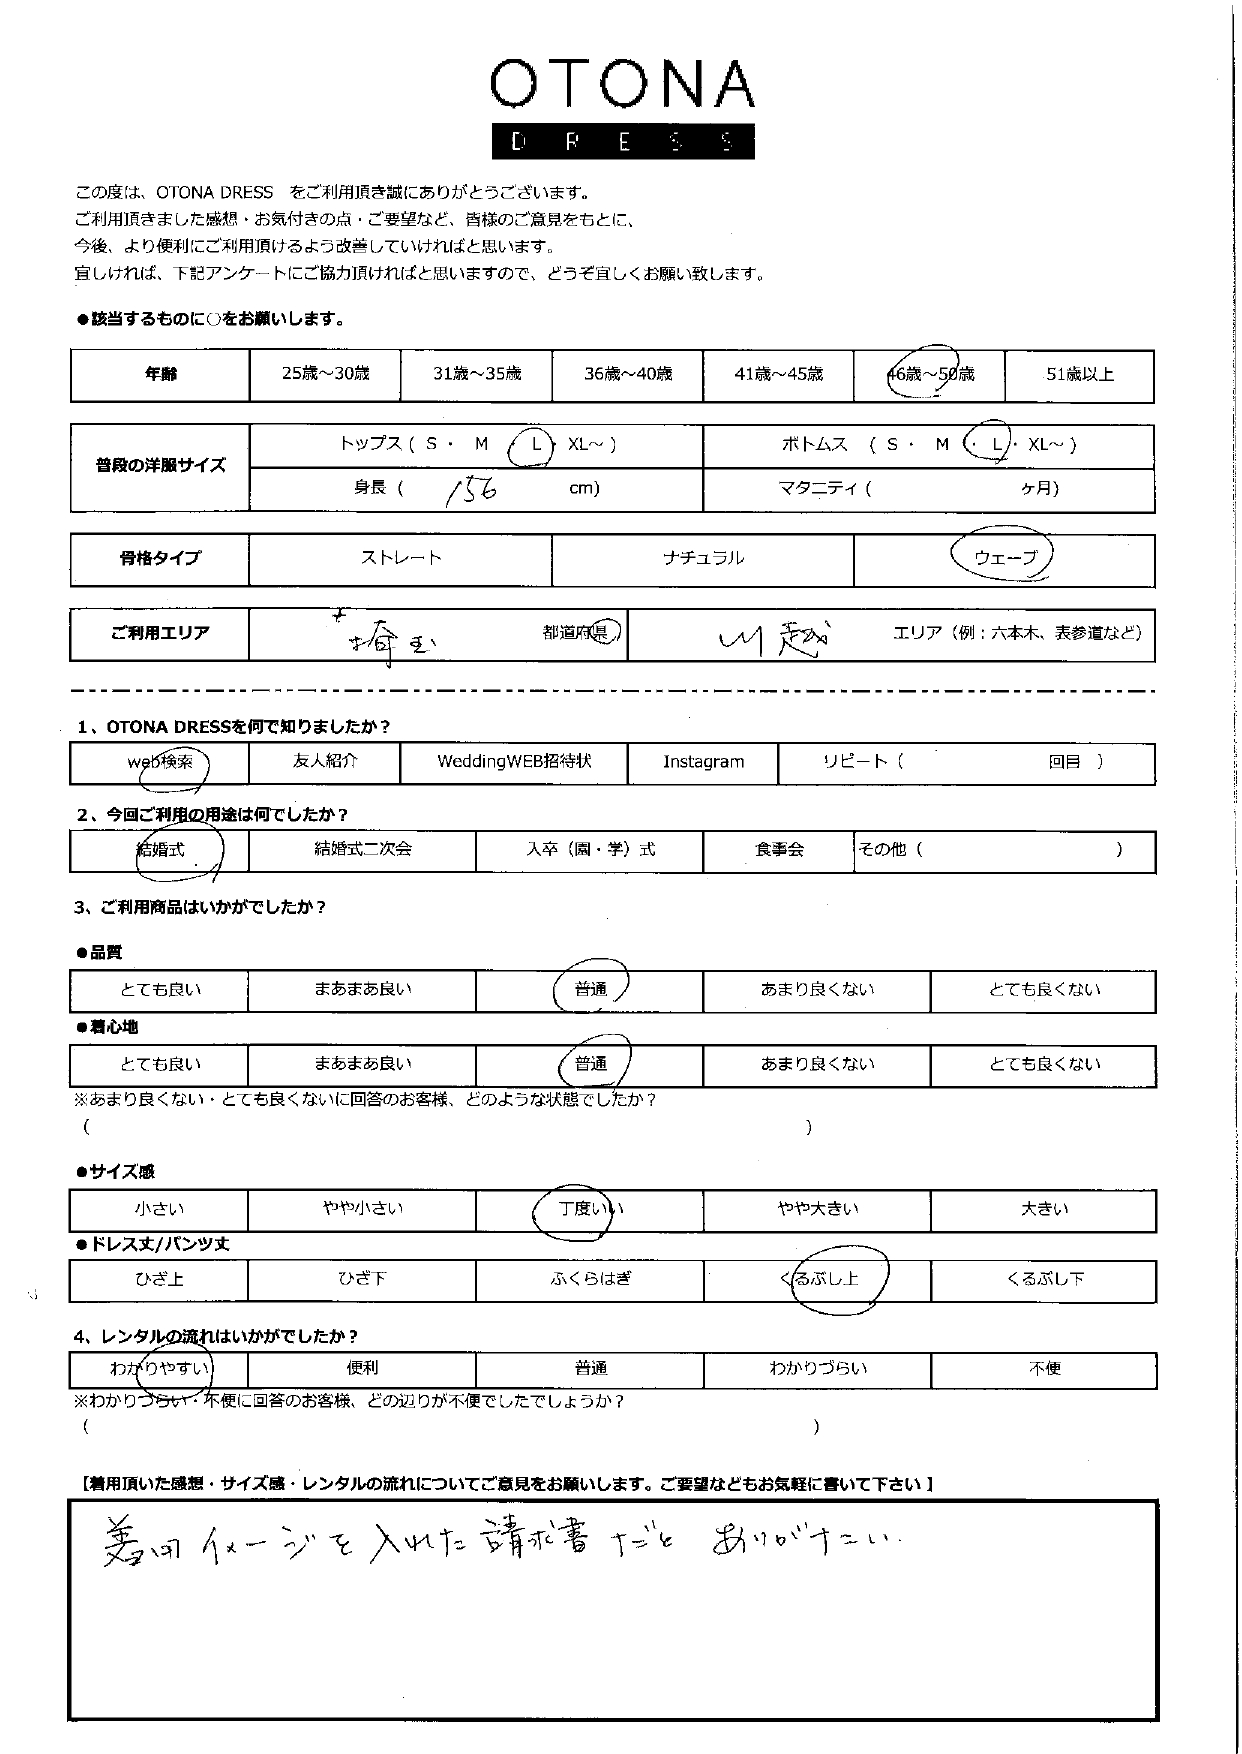 OTONA
DRESS
この度は、OTONA DRESS をご利用頂き誠にありがとうございます。
ご利用頂きました感想・お気付きの点・ご要望など、皆様のご意見をもとに、
今後、より便利にご利用頂けるよう改善していければと思います。
宜しければ、下記アンケートにご協力頂ければと思いますので、どうぞ宜しくお願い致します。
●該当するものに○をお願いします。
年齢 25歳～30歳 31歳～35歳 36歳～40歳 41歳～45歳 46歳～50歳 51歳以上
普段の洋服サイズ トップス ( S ・ M ・ L ・ XL～ ) ボトムス ( S ・ M ・ L ・ XL～ )
身長 ( 156 cm) マタニティ ( ヶ月)
骨格タイプ ストレート ナチュラル ウェーブ
ご利用エリア 埼玉 都道府県 川越 エリア（例：六本木、表参道など）
1、OTONA DRESSを何で知りましたか？
web検索 友人紹介 WeddingWEB招待状 Instagram リピート ( 回目 )
2、今回ご利用の用途は何でしたか？
結婚式 結婚式二次会 入卒（園・学）式 食事会 その他 ( )
3、ご利用商品はいかがでしたか？
●品質
とても良い まあまあ良い 普通 あまり良くない とても良くない
●着心地
とても良い まあまあ良い 普通 あまり良くない とても良くない
※あまり良くない・とても良くないに回答のお客様、どのような状態でしたか？
( )
●サイズ感
小さい やや小さい 丁度いい やや大きい 大きい
●ドレス丈/パンツ丈
ひざ上 ひざ下 ふくらはぎ くるぶし上 くるぶし下
4、レンタルの流れはいかがでしたか？
わかりやすい 便利 普通 わかりづらい 不便
※わかりづらい・不便に回答のお客様、どの辺りが不便でしたでしょうか？
( )
【着用頂いた感想・サイズ感・レンタルの流れについてご意見をお願いします。ご要望などもお気軽に書いて下さい 】
イメージを入れた請求書だと ありがたい.